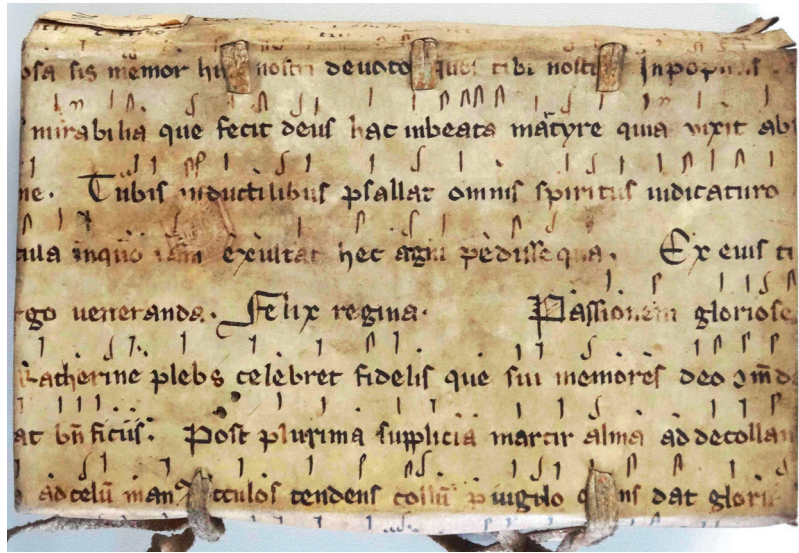 osa sis memor nostri devoto tibi In
mirabilia que fecit deus hac inbeata martyre quia vixit ab
ne. Tubis inductilibus psallat omnis spiritus iudicaturo
inquo exultat hec agni pedissequa. Ex eius
go ueneranda. Felix regina. Passionem gloriose
katherine plebs celebret fidelis que sui memores deo
at bn̄ficiis. Post plurima supplicia martir alma ad decollan
ad celū oculos tendens collū iugulo dat glori